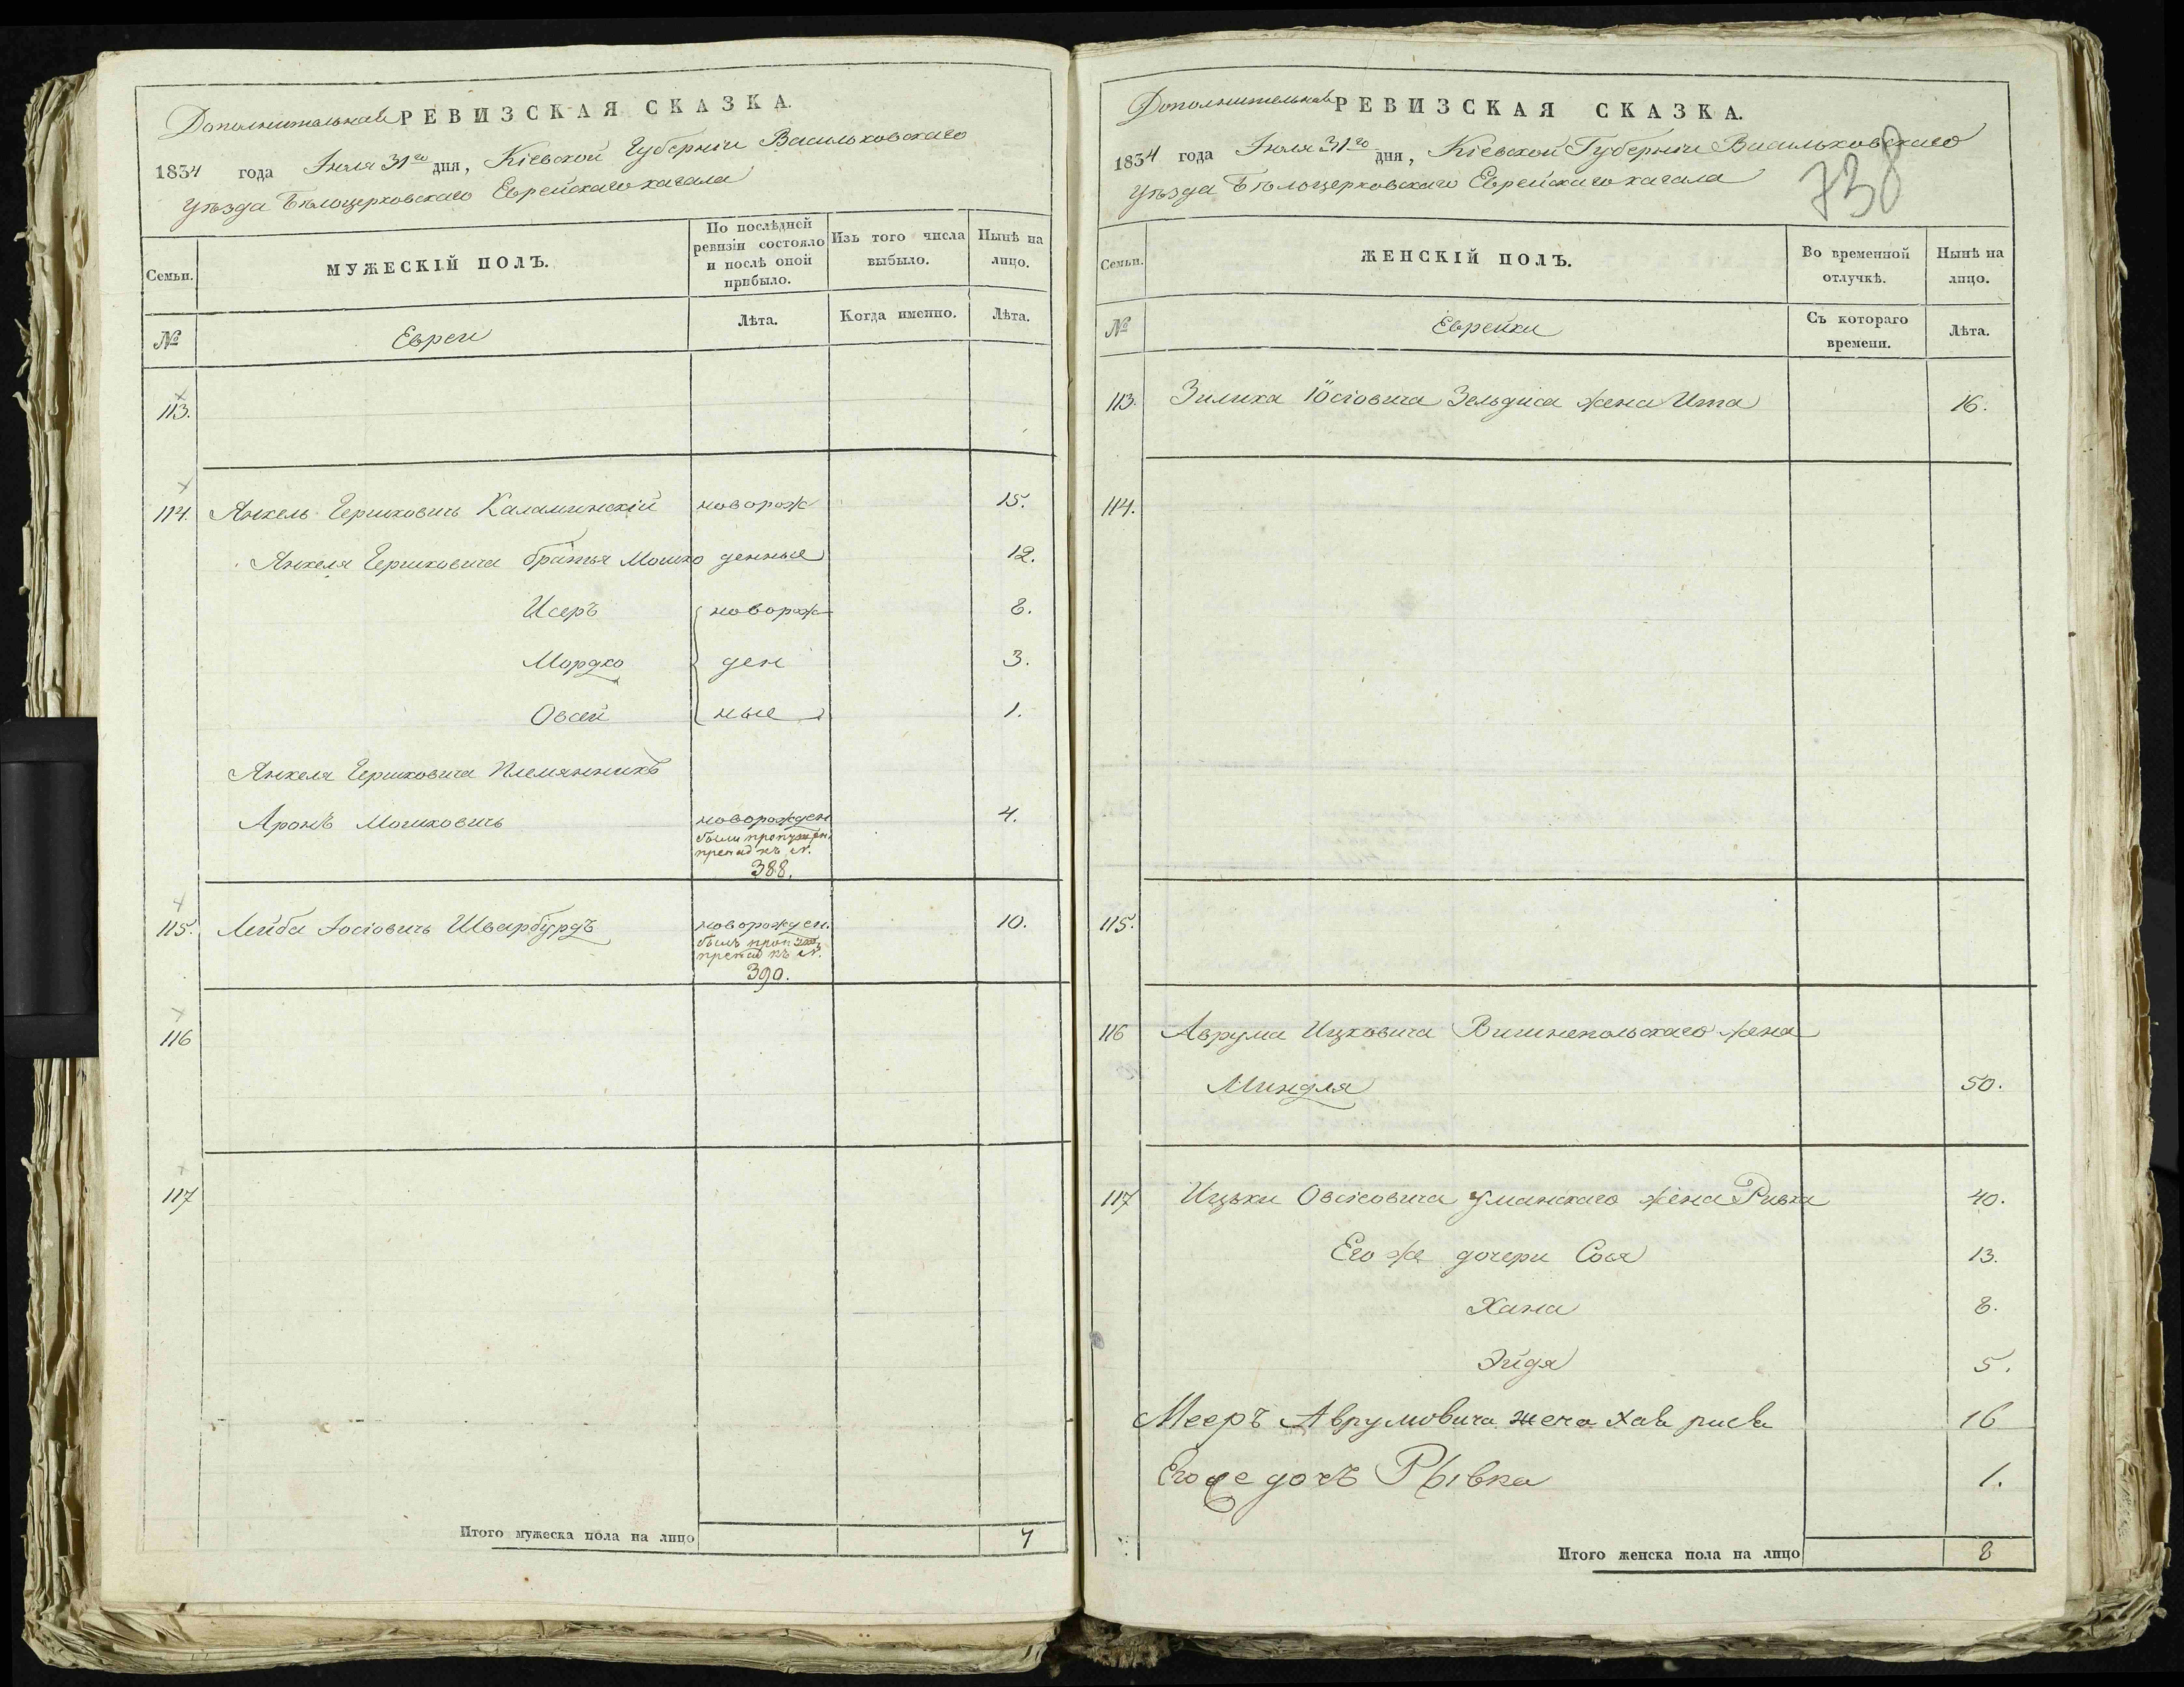 Дополнительная РЕВИЗСКАЯ СКАЗКА.
1834 года Іюля 31го дня, Кіевской Губерніи Васильковскаго
уѣзда Бѣлоцерковскаго Еврейскаго кагала
Семьи.
МУЖЕСКІЙ ПОЛЪ.
По послѣдней ревизіи состояло и послѣ оной прибыло.
Изъ того числа выбыло.
Нынѣ на лицо.
№
Евреи
Лѣта.
Когда именно.
Лѣта.
113.
114. Янкель Гершковичь Каламинскій новорож 15.
Янкеля Гершковича братья Мошко денные 12.
Исеръ новорож 8.
Мордко ден 3.
Овсей ные 1.
Янкеля Гершковича племянникъ
Аронъ Мошковичь новорожден 4.
были пропущен.
къ №.
388.
115. Лейба Іосіовичь Шварбурдъ новорожден. 10.
былъ проп
къ №.
390.
116
117
Итого мужеска пола на лицо 7
Дополнительная РЕВИЗСКАЯ СКАЗКА.
1834 года Іюля 31го дня, Кіевской Губерніи Васильковскаго
уѣзда Бѣлоцерковскаго Еврейскаго кагала
738
Семьи.
ЖЕНСКІЙ ПОЛЪ.
Во временной отлучкѣ.
Нынѣ на лицо.
№
Еврейки
Съ котораго времени.
Лѣта.
113. Зилика Іосіовича Зельдиса жена Ита 16.
114.
115.
116 Аврума Ицковича Вишнепольскаго жена
Миндля 50.
117 Ицьки Овсіовича Уманскаго жена Ривка 40.
Его же дочери Сося 13.
Хана 8.
Эйдя 5.
Мееръ Аврумовича жена Хава 16
Его же дочь Рывка 1.
Итого женска пола на лицо 8